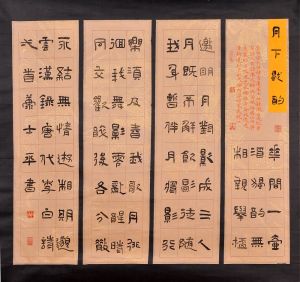 月下獨酌
華間一壺
酒獨酌無
相親舉杯
邀明月對影成三人
月既不解飲影徒隨
我身暫伴月將影行
樂須及春我歌月徘
徊我舞影零亂醒時
同交歡醉後各分散
永結無情遊相期邈
雲漢錄唐李白詩
士平書